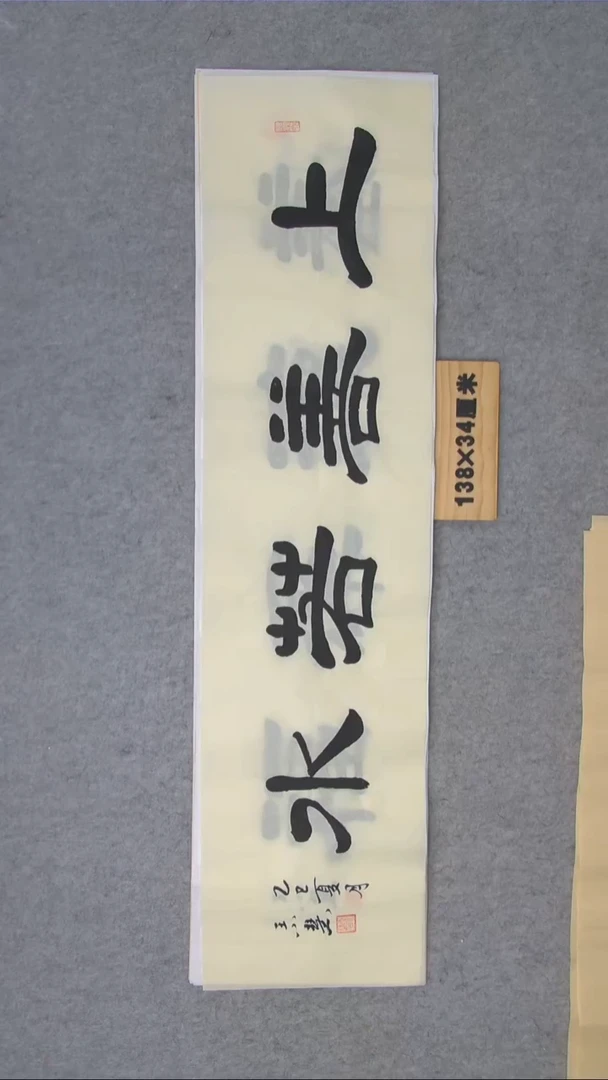 上善若水
乙巳夏月
138×34厘米